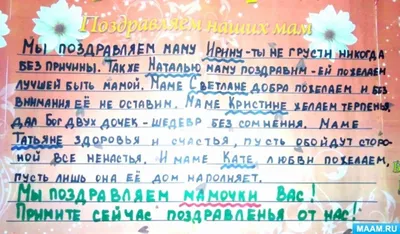 Поздравляем наших мам
Мы поздравляем маму Ирину-ты не грусти никогда
без причины. Также Наталью маму поздравим-ей пожелаем
лучшей быть мамой. Маме Светлане добра пожелаем и без
внимания её не оставим. Маме Кристине желаем терпенья,
дал Бог двух дочек-шедевр без сомнения. Маме
Татьяне здоровья и счастья, пусть обойдут сторо-
ной все ненастья. И маме Кате любви пожелаем,
пусть лишь она её дом наполняет.
Мы поздравляем мамочки вас!
Примите сейчас поздравленья от нас!
MAAM.RU